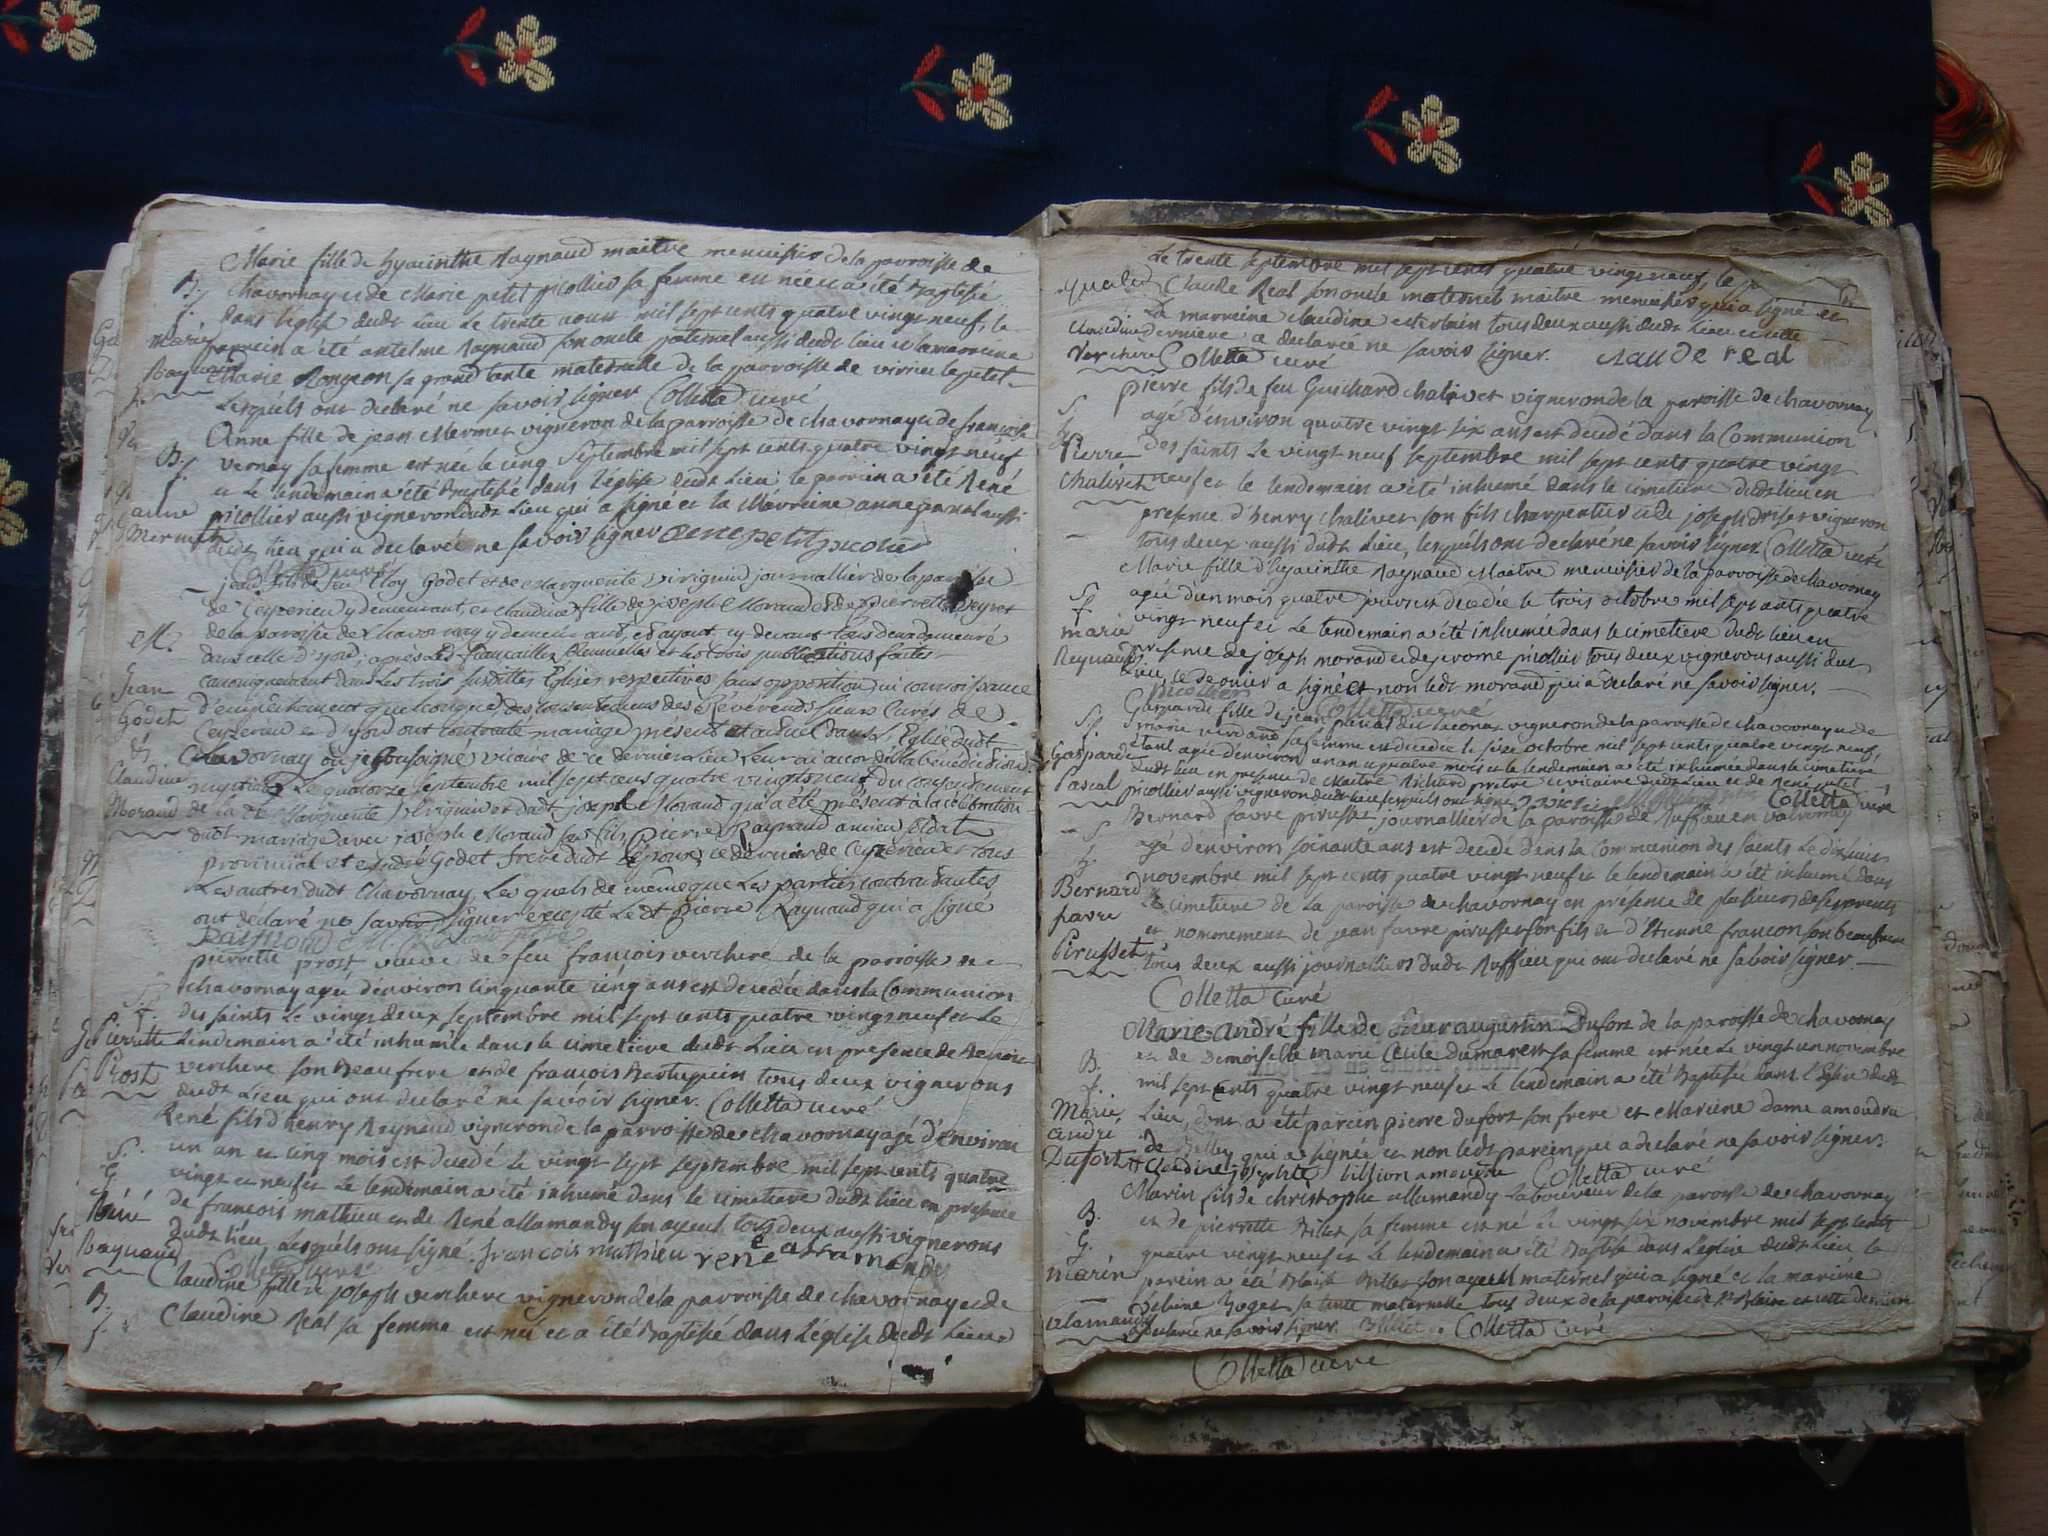 Marie fille de hyacinthe Raynaud maitre menuisier de la parroisse de
B. chavornay et de Marie petit picollier sa femme est née et a été Baptisée
f. dans l'eglise dudt lieu le trente aoust mil sept cents quatre vingt neuf, le
marie parrein a été antelme Raynaud son oncle paternel aussi dudt lieu et la marreine
Raynaud Marie Rongeon sa grand tante maternelle de la parroisse de virieu le petit
Lesquels ont declaré ne savoir signer Colletta curé
Anne fille de jean Mermet vigneron de la parroisse de chavornay et de françoise
B. vernay sa femme est née le cinq septembre mil sept cents quatre vingt neuf
f. et le lendemain a été Baptisée dans l'église dudt Lieu le parrein a été René
anne picollier aussi vigneron dudt Lieu qui a signé et la Marreine anne aussi
Mermet dudt lieu qui a declarée ne savoir signer Rene petit picolier
Colletta curé
jean fils de feu Eloy Godet et de Marguerite viriguin journallier de la paroisse
de Ceyzerieu y demeurant, et claudine fille de joseph Morand et de pierrette peyret
M. de la paroisse de Chavornay y demeurant, et ayant cy devant tous deux demeuré
dans celle d'yon; après les fiançailles et les trois publications faites
canoniquement dans les trois susdittes Eglises respectives sans opposition ni connoissance
Jean d'empechement quelconque, des consentemens des Révérends sieurs Curés de
Godet Ceyzerieu et d'yon ont contracté mariage présent et actuel dans l'Eglise dudt
& Chavornay où je soussigné vicaire de ce dernier lieu leur ai accordé la bénédiction
Claudine nuptiale Le quatorze septembre mil sept cens quatre vingts neuf du consentement
Morand de la dt Marguerite viriguin et dudt joseph Morand qui a été présent à la célébration
dudt mariage avec joseph Morand son fils, Pierre Raynaud ancien soldat
provincial et andré Godet frere dudt Epoux, ce dernier de Ceyzerieu et tous
Les autres dudt Chavornay, Les quels de même que Les parties contractantes
ont déclaré ne savoir signer excepté Le dt pierre Raynaud qui a signé
pierrette prost veuve de feu françois verchere de la parroisse de
S. chavornay agée d'environ cinquante cinq ans est decedée dans la Communion
f. des saints Le vingt deux septembre mil sept cents quatre vingt neuf et Le
Pierrette Lendemain a été inhumée dans le cimetiere dudt Lieu en presence de Benoit
Prost verchere son Beaufrere et de françois Bertuppein tous deux vignerons
dudt Lieu qui ont declaré ne savoir signer. Colletta curé
René fils d'henry Reynaud vigneron de la parroisse de chavornay agé d'environ
S. un an et cinq mois est decedé le vingt sept septembre mil sept cents quatre
G. vingt et neuf et Le lendemain a été inhumé dans le cimetiere dudt Lieu en présence
René de francois mathieu et de René allamandy son ayeul tous deux aussi vignerons
Raynaud dudt lieu, Lesquels ont signé. francois mathieu rené allamandy
Colletta curé
B. Claudine fille de joseph verchere vigneron de la parroisse de chavornay et de
f. Claudine Real sa femme est née et a été Baptisée dans l'eglise dudt Lieu
Le trente septembre mil sept cents quatre vingt neuf, le
Claude Real son oncle maternel maitre menuisier qui a signé et
La marreine claudine tous deux aussi dudt Lieu et cette
Claudine derniere a declarée ne savoir signer. claude real
Verchere Colletta curé
pierre fils de feu Guichard chalivet vigneron de la paroisse de chavornay
S. agé d'environ quatre vingt six ans est decedé dans la Communion
G. des saints Le vingt neuf septembre mil sept cents quatre vingt
Pierre neuf et le lendemain a été inhumé dans le cimetiere dudt lieu en
Chalivet presence d'henry chalivet son fils charpentier et de joseph vigneron
tous deux aussi dudt Lieu, lesquels ont declaré ne savoir signer. Colletta curé
Marie fille d'hyacinthe Raynaud Maitre menuisier de la parroisse de chavornay
S. agée d'un mois quatre jours est decedée le trois octobre mil sept cents quatre
f. vingt neuf et Le lendemain a été inhumée dans le cimetiere dudt lieu en
marie presence de joseph morand et de jerome picollier tous deux vignerons aussi dudt
Reynaud Lieu, le dernier a signé et non ledt morand qui a declaré ne savoir signer.
picollier Colletta curé
Gasparde fille de jean pascal vigneron de la parroisse de chavornay et de
S. f. marie sa femme est decedée le seize octobre mil sept cents quatre vingt neuf,
Gasparde étant agée d'environ un an et quatre mois et le lendemain a été inhumée dans le cimetiere
Pascal dudt lieu en presence de Maitre Richard prêtre et vicaire dudt Lieu et de René petit
picollier aussi vigneron dudt Lieu lesquels ont signé Colletta curé
Bernard favre pirusset journallier de la paroisse de Ruffieu en valromey
S. agé d'environ soixante ans est decedé dans la Communion des saints Le dixhuit
G. novembre mil sept cents quatre vingt neuf et le lendemain a été inhumé dans
Bernard le cimetiere de la paroisse de chavornay en présence de plusieurs de ses parents
favre et nommement de jean favre pirusset son fils et d'Etienne françon son beaufrere
Pirusset tous deux aussi journalliers dudt Ruffieu qui ont declaré ne savoir signer.
Colletta curé
Marie-andré fille de sieur augustin Dufort de la paroisse de chavornay
B. et de Demoiselle marie Cécile Dumarest sa femme est née Le vingt un novembre
f. mil sept cents quatre vingt neuf et Le lendemain a été Baptisée dans l'Eglise dudt
Marie Lieu, dont a été parein pierre dufort son frere et Mareine dame amoudru
andré de Belley qui a signée et non ledt parein qui a declaré ne savoir signer.
Dufort Claudine josephte billion amoudru Colletta curé
Marin fils de christophe allamandy Laboureur de la paroisse de chavornay
B. et de pierrette Billet sa femme est né Le vingt six novembre mil sept cents
G. quatre vingt neuf et Le lendemain a été Baptisé dans l'eglise dudt Lieu le
marin parein a été Blaise Billet son ayeul maternel qui a signé et la mareine
alamandy sa tante maternelle tous deux de la paroisse de st Blaise et cette derniere
a declarée ne savoir signer. Billet. Colletta curé
Colletta curé